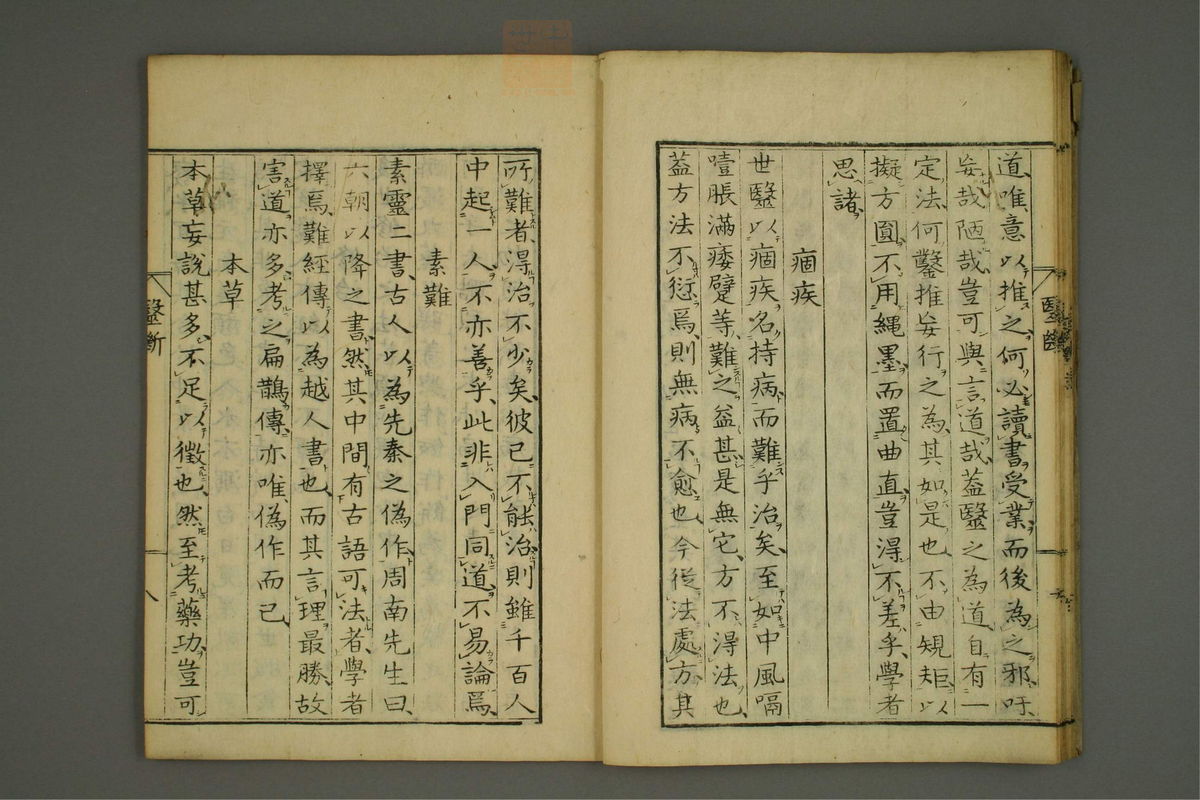 道唯意以推之何必讀書受業而後為之邪吁
妄哉陋哉豈可與言道哉葢醫之為道自有一
定法何鑿推妄行之為其如是也不由規矩以
擬方圓不用繩墨而置曲直豈得不差乎學者
思諸
痼疾
世醫以痼疾名持病而難乎治矣至如中風嗝
噎脹滿痿躄等難之益甚是無它方不得法也
葢方法不愆焉則無病不愈也今從法處方其
醫斷
所難者得治不少矣彼已不能治則雖千百人
中起一人不亦善乎此非入門同道不易論焉
素難
素靈二書古人以為先秦之偽作周南先生曰
六朝以降之書然其中間有古語可法者學者
擇焉難經傳以為越人書也而其言理最勝故
害道亦多考之扁鵲傳亦唯偽作而已
本草
本草妄說甚多不足以徵也然至考藥功豈可
醫斷